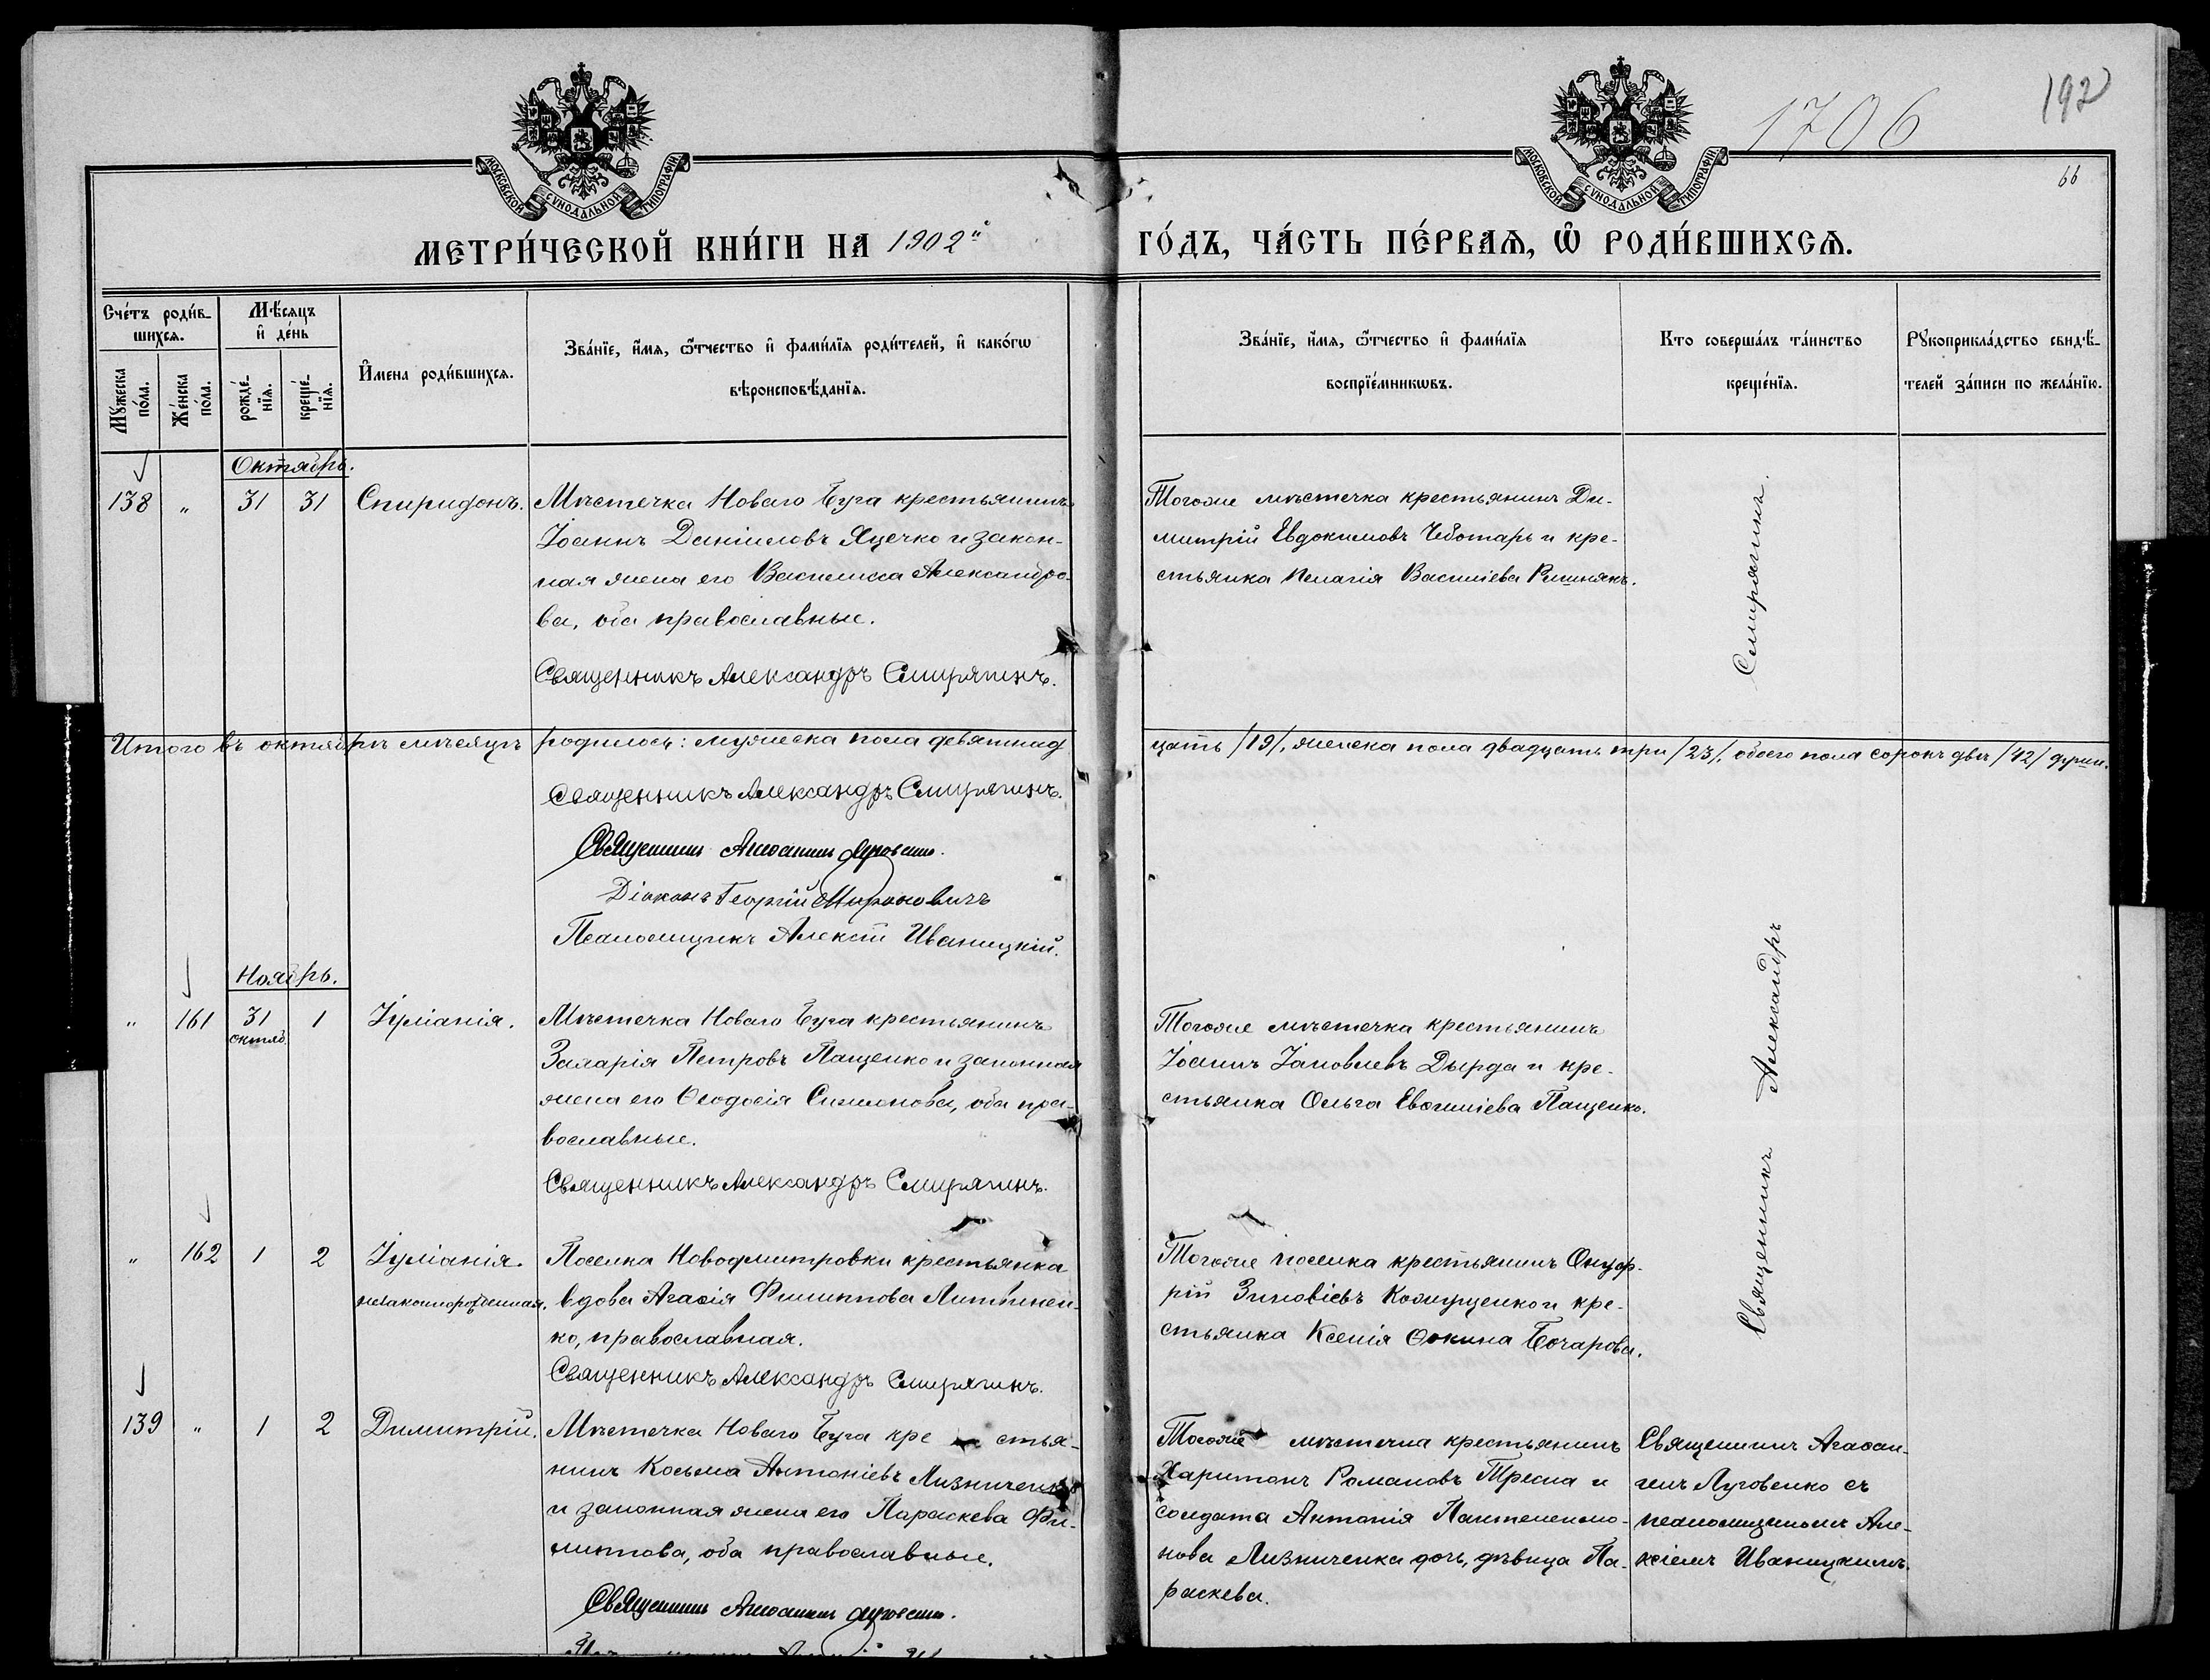 1706
192
66
МОСКОВСКОЙ СУНОДАЛЬНОЙ ТИПОГРАФІИ
МОСКОВСКОЙ СУНОДАЛЬНОЙ ТИПОГРАФІИ
МЕТРИ́ЧЕСКОЙ КНИ́ГИ НА 1902й ГО́ДЪ, ЧА́СТЬ ПЕ́РВАѦ, Ѡ҆ РОДИ́ВШИХСѦ.
Сче́тъ роди́в-
шихсѧ.
Мѣ́сѧцъ
и҆ де́нь
Мꙋ́жеска
по́ла.
Же́нска
по́ла.
рожде́-
нїѧ.
креще́-
нїѧ.
И҆мена роди́вшихсѧ.
Зва́нїе, и҆́мѧ, ѻ҆́тчество и҆ фами́лїѧ роди́телей, и҆ како́гѡ
вѣроисповѣ́данїѧ.
Зва́нїе, и҆́мѧ, ѻ҆́тчество и҆ фами́лїѧ
воспрїе́мникѡвъ.
Кто соверша́лъ та́инство
креще́нїѧ.
Рꙋкоприкла́дство свидѣ́-
телей за́писи по жела́нїю.
Октябрь.
138 " 31 31 Спиридонъ.
Мѣстечка Новаго Буга крестьянинъ
Іоаннъ Даніиловъ Яцечко и закон-
ная жена его Василисса Александро-
ва, оба православные.
Священникъ Александръ Смирягинъ.
Тогоже мѣстечка крестьянинъ Ди-
митрій Евдокимовъ Чеботарь и кре-
стьянка Пелагія Василіева Ришнякъ.
Итого въ октябрѣ мѣсяцѣ родилось: мужеска пола девятнад
цать /19/, женска пола двадцать три /23/, обоего пола сорокъ двѣ /42/ души.
Священникъ Александръ Смирягинъ.
Священникъ Агаѳангелъ Луговенко.
Діаконъ Георгій Мироновичъ
Псаломщикъ Алексѣй Иваницкій.
Ноябрь.
" 161 31 1 Іуліанія.
октяб.
Мѣстечка Новаго Буга крестьянинъ
Захарія Петровъ Пащенко и законная
жена его Ѳеодосія Симеонова, оба пра-
вославные.
Священникъ Александръ Смирягинъ.
Тогоже мѣстечка крестьянинъ
Іоаннъ Іаковлевъ Дырда и кре-
стьянка Ольга Евѳиміева Пащенко.
Священникъ Александръ Смирягинъ.
" 162 1 2 Іуліанія.
незаконнорожденная.
Поселка Новодмитровки крестьянка
вдова Агаѳія Филиппова Литвинен-
ко, православная.
Священникъ Александръ Смирягинъ.
Тогоже поселка крестьянинъ Онуф-
рій Зиновіевъ Кожущенко и кре-
стьянка Ксенія Ѳокина Бочарова.
139 " 1 2 Димитрій.
Мѣстечка Новаго Буга кре стья-
нинъ Косьма Антоніевъ Лизниченко
и законная жена его Параскева Фи-
липпова, оба православные.
Священникъ Агаѳангелъ Луговенко.
Тогоже мѣстечка крестьянинъ
Харитонъ Романовъ Тресна и
солдата Антонія Пантелеимо-
нова Лизниченка дочь, дѣвица Па-
раскева.
Священникъ Агаѳан-
гелъ Луговенко съ
псаломщикомъ Але-
ксіемъ Иваницкимъ.